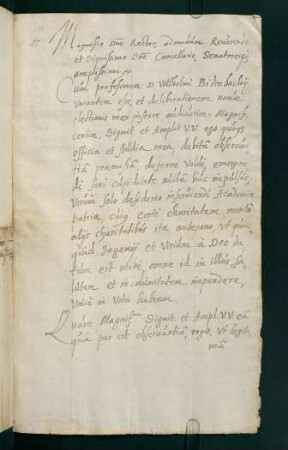 Magnifice Dñe Rector, admodum Reverende
et Dignissime Dñe Cancellarie, Senatoresq
amplissimi
Cum professionem D. Wilhelmi
vacantem esse, et deliberationem novae
electionis mox instare audiverim: Magnif.
Dignit. et Amplit. V.V. ego quoq
officia et studia mea, debita observan
tia praemissa deferre volui,
di sane cupiditate nulla huc impulsus,
Verum solo desiderio inserviendi Academiae
patriae, cuiq certe charitatem, merito
alijs charitatibus ita antepono, Ut quic
quid Ingenij et Virium a DEO da
tum est mihi, omne id in illius sa
lutem et incolumitatem impendere,
Unice in Votis habeam.
Quare Magnif. Dignit. et Ampl. V.V. ea
qua par est observantia, rogo, Ut legit